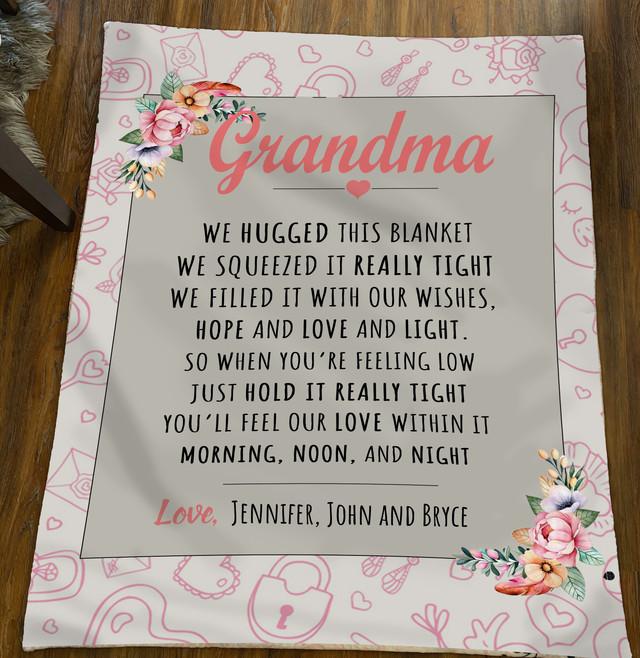 Grandma
WE HUGGED THIS BLANKET
WE SQUEEZED IT REALLY TIGHT
WE FILLED IT WITH OUR WISHES,
HOPE AND LOVE AND LIGHT.
SO WHEN YOU'RE FEELING LOW
JUST HOLD IT REALLY TIGHT
YOU'LL FEEL OUR LOVE WITHIN IT
MORNING, NOON, AND NIGHT
Love, JENNIFER, JOHN AND BRYCE